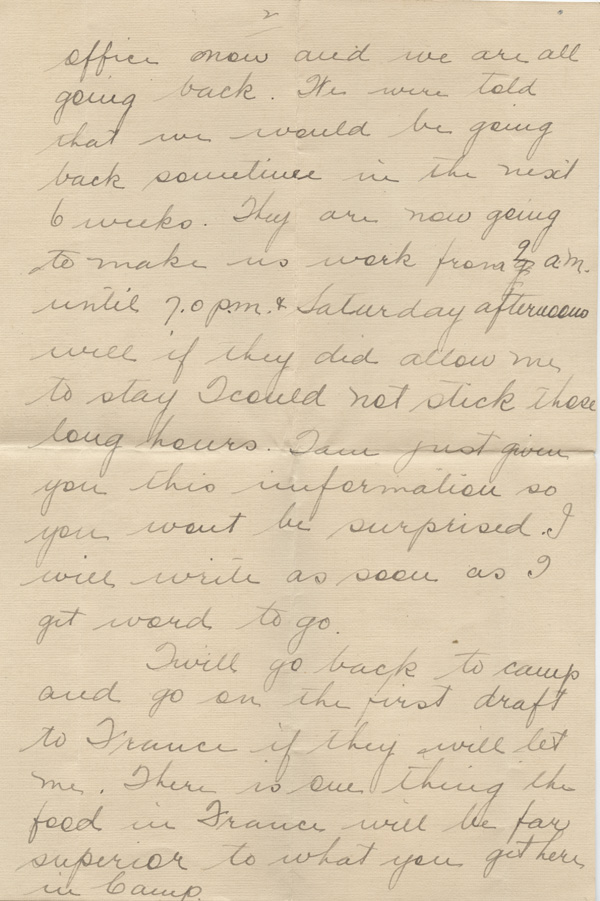 2
office now and we are all
going back. We were told
that we would be going
back sometime in the next
6 weeks. They are now going
to make us work from 9 a.m.
until 7.0 p.m. & Saturday afternoons
will if they did allow me
to stay I could not stick those
long hours. I am just given
you this information so
you wont be surprised. I
will write as soon as I
get word to go.
I will go back to camp
and go on the first draft
to France if they will let
me. There is one thing the
food in France will be far
superior to what you get here
in Camp.